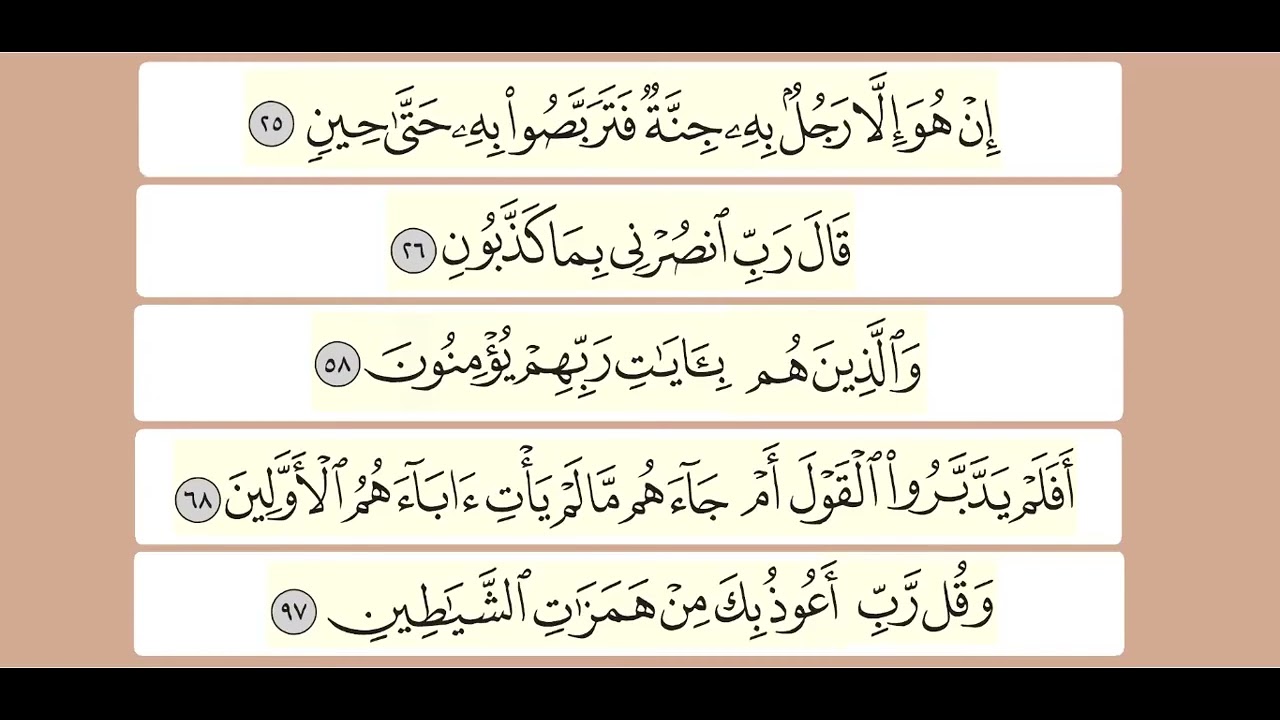 إِنۡ هُوَ إِلَّا رَجُلُۢ بِهِۦ جِنَّةٞ فَتَرَبَّصُواْ بِهِۦ حَتَّىٰ حِينٖ ٢٥
قَالَ رَبِّ ٱنصُرۡنِي بِمَا كَذَّبُونِ ٢٦
وَٱلَّذِينَ هُم بِـَٔايَٰتِ رَبِّهِمۡ يُؤۡمِنُونَ ٥٨
أَفَلَمۡ يَدَّبَّرُواْ ٱلۡقَوۡلَ أَمۡ جَآءَهُم مَّا لَمۡ يَأۡتِ ءَابَآءَهُمُ ٱلۡأَوَّلِينَ ٦٨
وَقُل رَّبِّ أَعُوذُ بِكَ مِنۡ هَمَزَٰتِ ٱلشَّيَٰطِينِ ٩٧